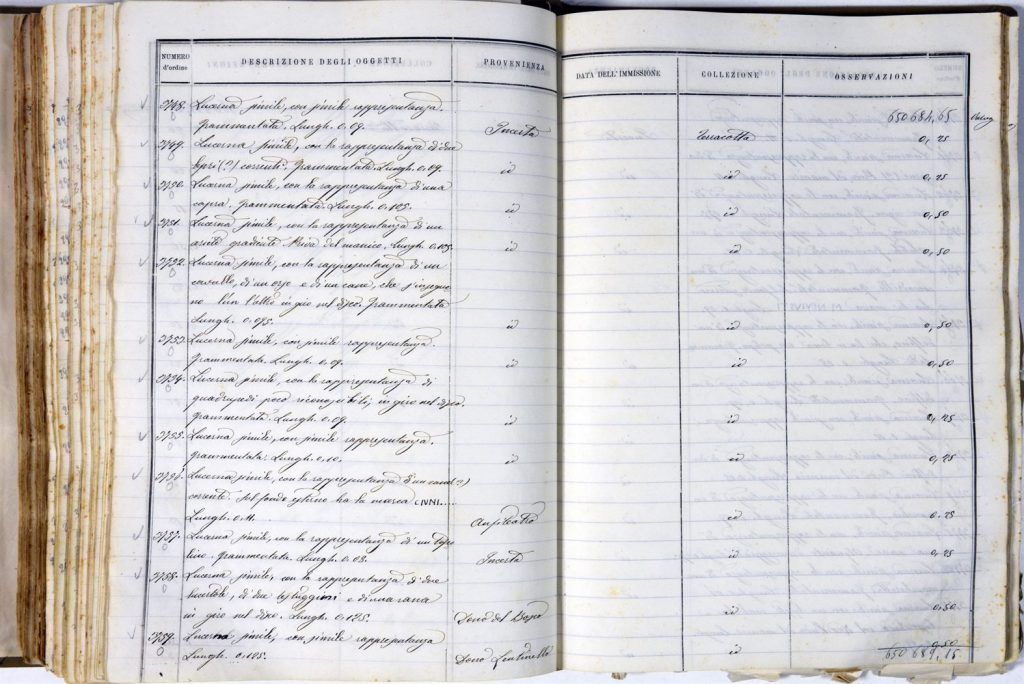 NUMERO d'ordine DESCRIZIONE DEGLI OGGETTI PROVENIENZA DATA DELL'IMMISSIONE COLLEZIONE OSSERVAZIONI
650 684,65
3748. Lucerna simile, con simile rappresentanza.
frammentata. Lungh. 0.09. Incerta Terracotta 0,25
3749. Lucerna simile, con la rappresentanza di due
lepri (?) correnti. frammentata. Lungh. 0.09. id id 0,25
3750. Lucerna simile, con la rappresentanza di una
capra. frammentata. Lungh. 0.105. id id 0,50
3751. Lucerna simile, con la rappresentanza di un
ariete gradiente. Priva del manico. Lungh. 0.105. id id 0,50
3752. Lucerna simile, con la rappresentanza di un
cavallo, di un orso e di un cane, che s'inseguo
no l'un l'altro in giro nel disco. frammentata
Lungh. 0.095. id id 0,50
3753. Lucerna simile, con simile rappresentanza.
frammentata. Lungh. 0.09. id id 0,50
3754. Lucerna simile, con la rappresentanza di
quadrupedi poco riconoscibili, in giro nel disco.
frammentata. Lungh. 0.09. id id 0,25
3755. Lucerna simile, con simile rappresentanza.
frammentata. Lungh. 0.10. id id 0,25
3756. Lucerna simile, con la rappresentanza d'un cane (?)
corrente. Nel fondo esterno ha la marca CIVNI....
Lungh. 0.11. Anfiteatro id 0,25
3757. Lucerna simile, con la rappresentanza di un topo
lino. frammentata. Lungh. 0.08. Incerta id 0,25
3758. Lucerna simile, con la rappresentanza di due
lucertole, di due testuggini e di una rana
in giro nel disco. Lungh. 0.125. Dono del Bosco id 0,50
3759. Lucerna simile, con simile rappresentanza
Lungh. 0.105. Dono Lentinello id 0,50
650 689,15